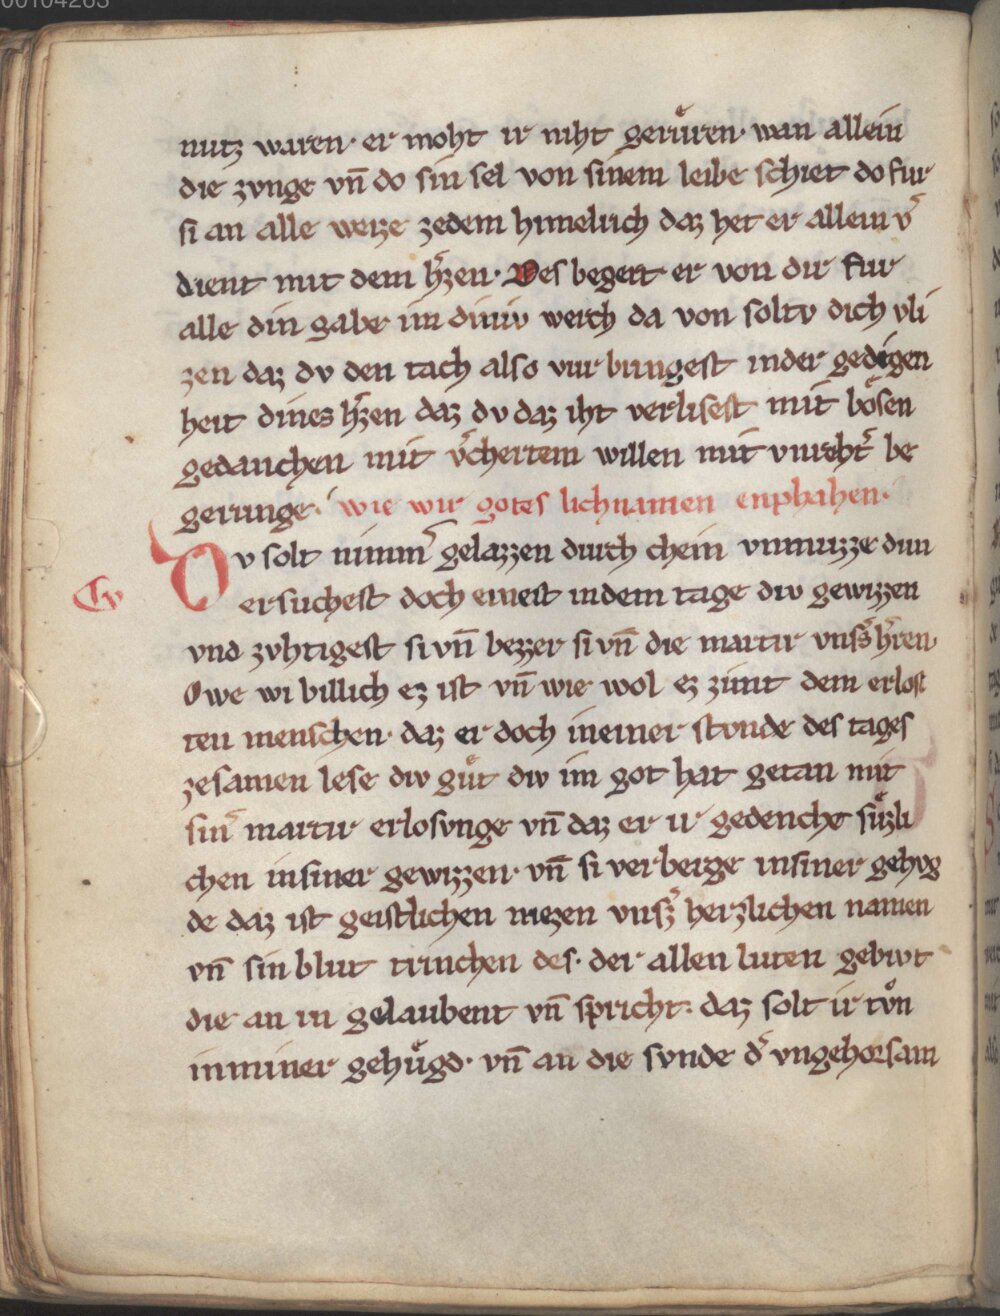 nutz waren· er moht ir niht geruͤren· wan allein
die zvnge vn̄ do sin sel von sinem leibe schiet do fur
si an alle weize zedem himelrich daz het er allein v͛
dient mit dem h͛zen· Des begert er von dir fur
alle din gabe im diniv werch da von soltv dich vli
zen daz dv den tach also vur bringest inder gedigen
heit dines h͛zen daz dv daz iht verlisest mit boͤsen
gedanchen mit v͛chertem willen mit vnreht͛ be
gerunge· wie wir gotes lichnamen enphahen·
Dv solt nimm͛ gelazzen durch chein vnmuzze dun
ersuchest doch eineist indem tage div gewizzen
vnd zvhtigest si vn̄ bezzer si vn̄ die martir vns͛s h͛ren·
Owe wi billich ez ist vn̄ wie wol ez zimt dem erlost
ten menschen· daz er doch ineiner stvnde des tages
zesamen lese div guͤt div im got hat getan mit
sin͛ martir erlosvnge vn̄ daz er ir gedenche suͤzli
chen insiner gewizzen· vn̄ si verberge insiner gehvg
de daz ist geistlichen niezen vnsz͛ herzlichen namen
vn̄ sin blut trinchen des· der allen luten gebivt
die an in gelaubent vn̄ spricht· daz solt ir tvͦn
inminer gehuͤgd· vn̄ an die svnde d͛ vngehorsam